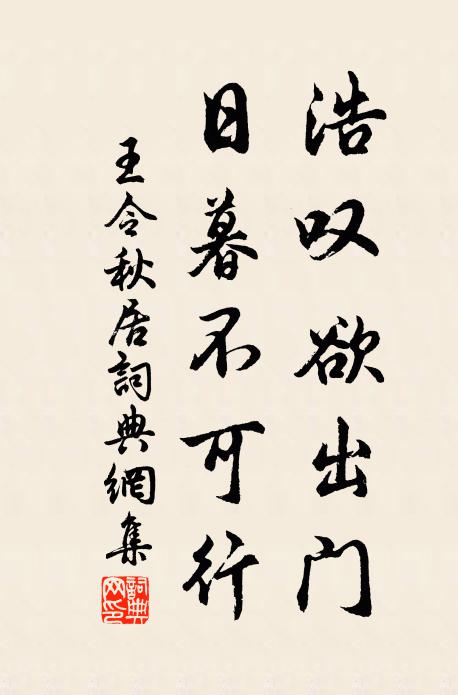 浩叹欲出门
日暮不可行
王令秋居詞典網集
詞典網印